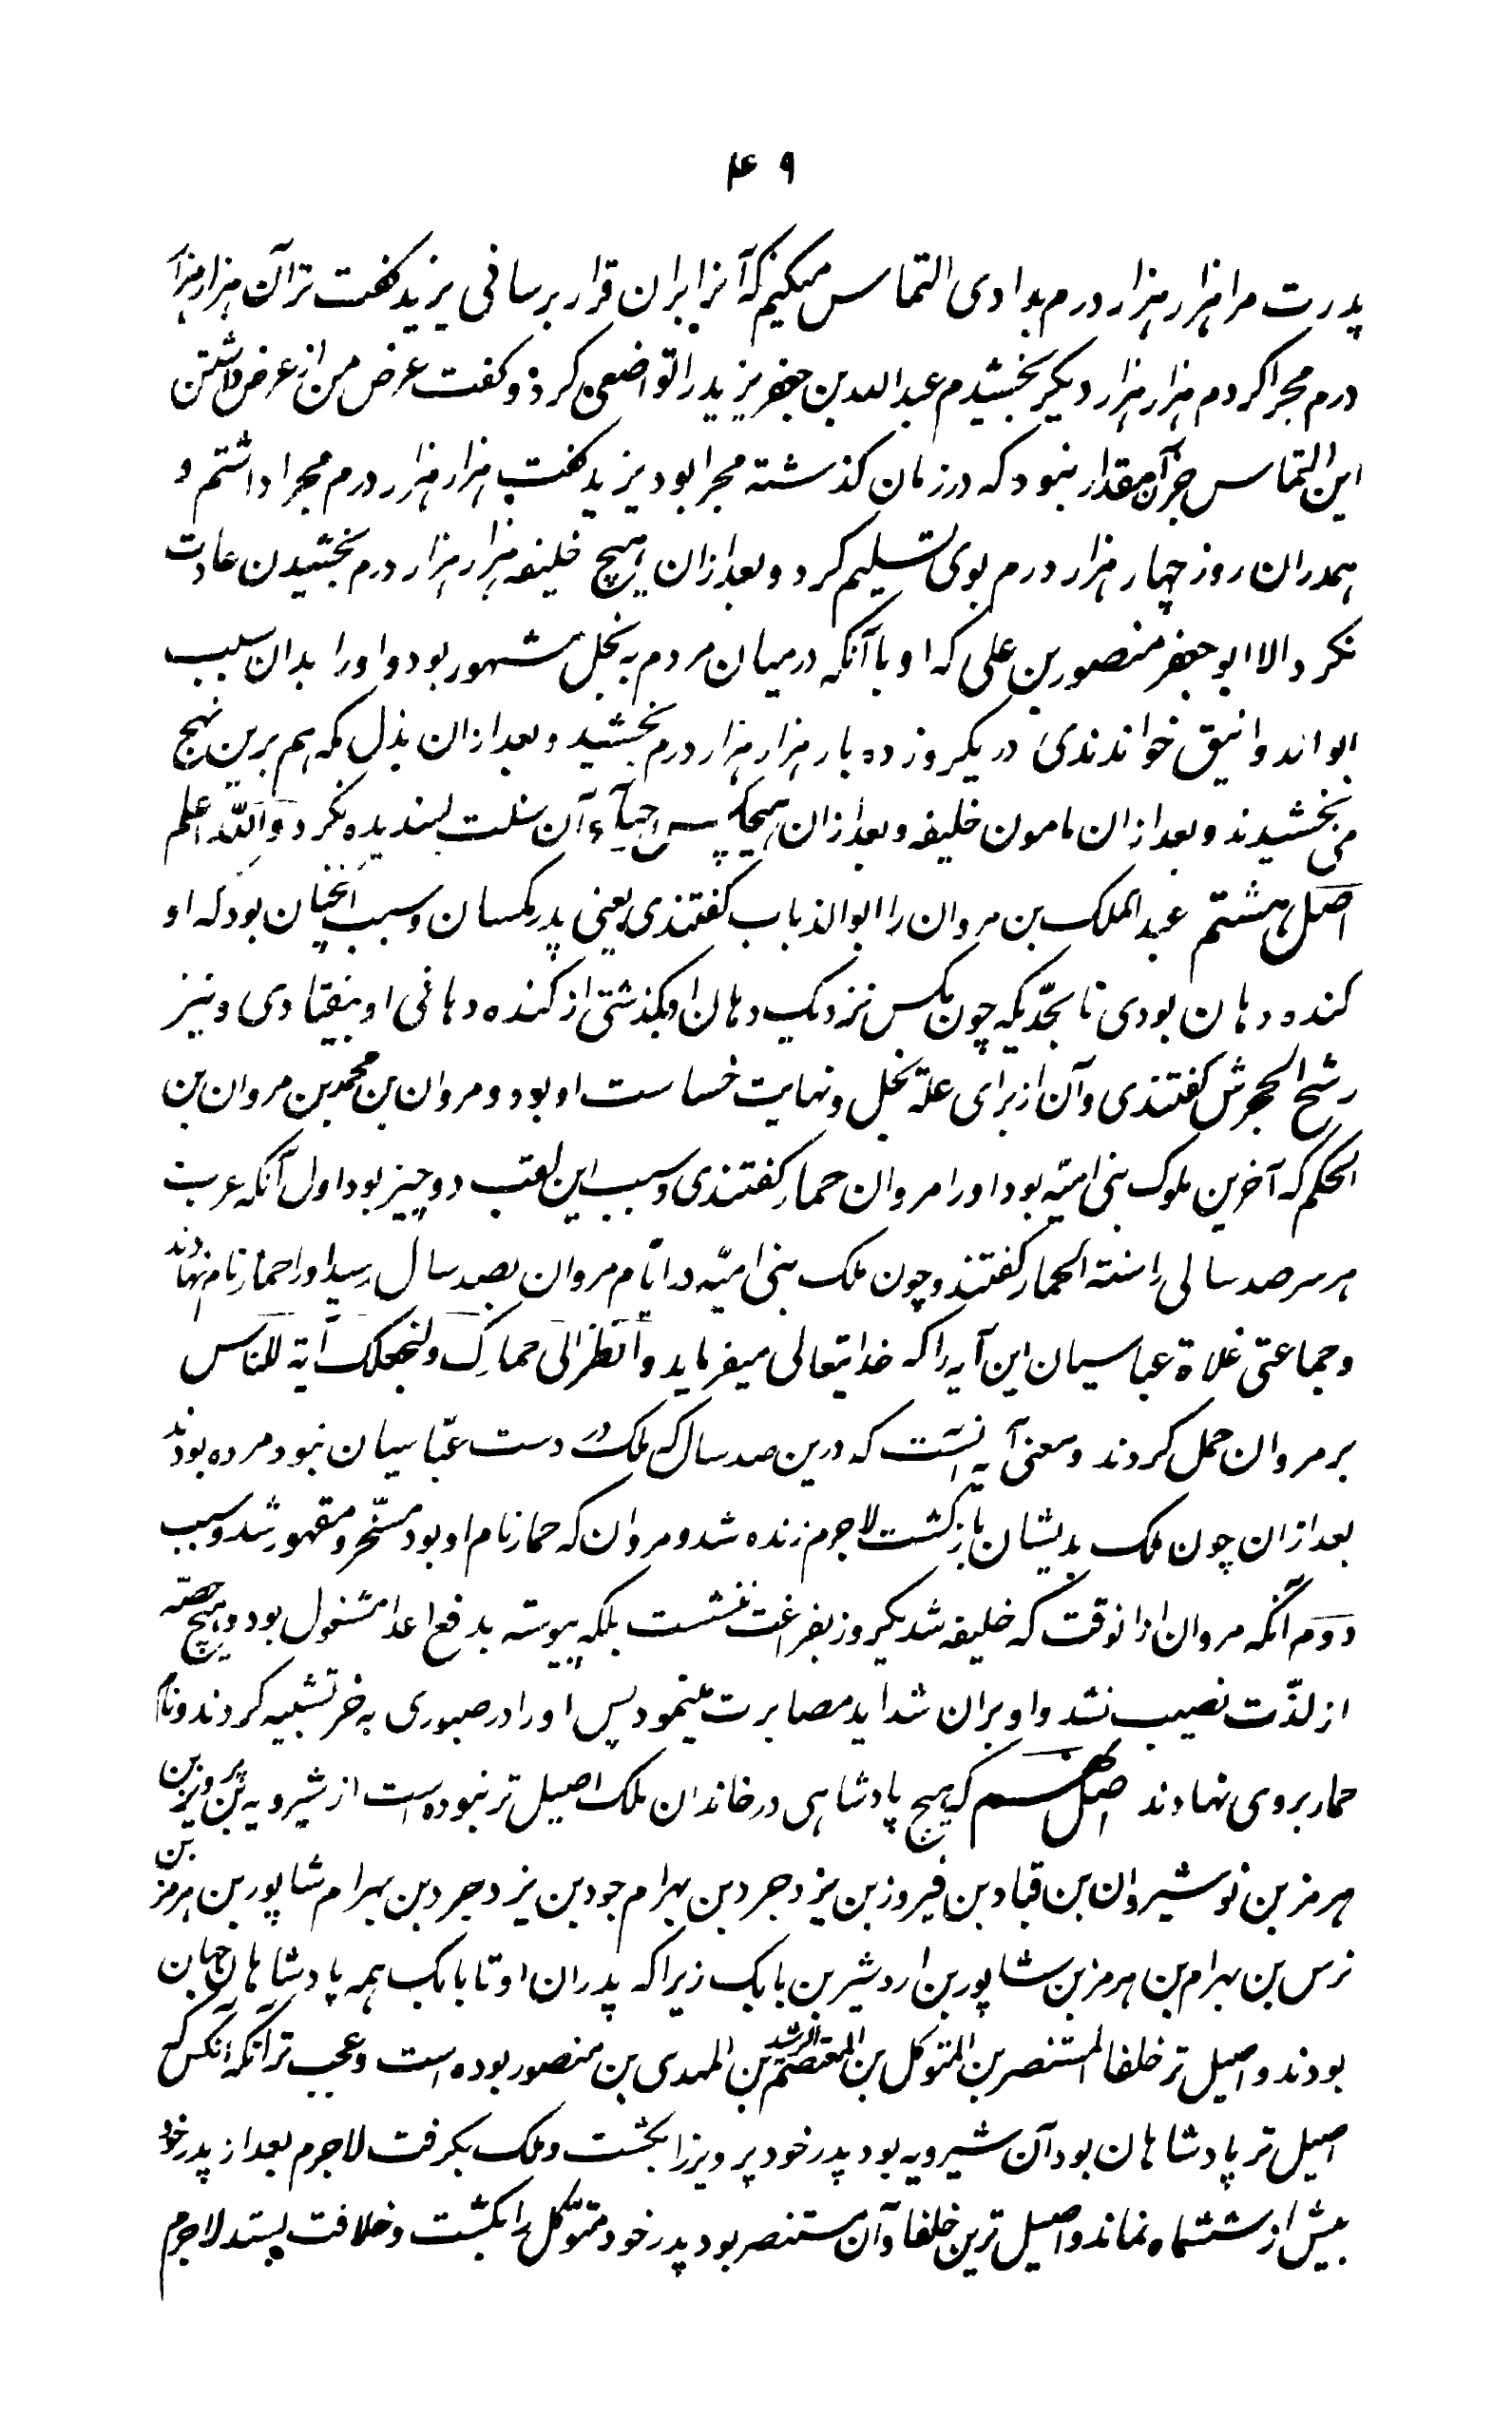 ۴۹
پدرت مرا هزار هزار درم بدادی التماس میکنیم که آنرا بران قرار برسانی یزید کفت ترا آن هزار هزار
درم مجرا کردم هزار هزار دیکر بخشیدم عبدالله بن جعفر یزید را تواضعی کرد و کفت غرض من از عرض داشتن
این التماس جز آن مقدار نبود که در زمان کذشته مجرا بود یزید کفت هزار هزار درم مجرا داشتم و
همدران روز چهار هزار درم بوی تسلیم کرد و بعد ازان هیچ خلیفه هزار هزار درم بخشیدن عادت
نکرد الا ابو جعفر منصور بن علی که او با آنکه در میان مردم به بخل مشهور بود و او را بدان سبب
ابو اند وانیق خواندندی در یکروز ده بار هزار هزار درم بخشید و بعد ازان بذل مکه هم برین نهج
می بخشیدند و بعد ازان مامون خلیفه و بعد ازان هیچکس احیآء آن سنت پسندیده نکرد والله اعلم
اصل هشتم عبد الملک بن مروان را ابو الذباب کفتندی یعنی پدر مکسان و سبب آنچنان بود که او
کنده دهان بودی تا بحدّیکه چون مکس نزدیک دهان او بکذشتی از کنده دهانی او بیفتادی و نیز
رشح الحجرش کفتندی و آن از برای علة بخل و نهایت خساست او بود و مروان بن محمد بن مروان بن
الحکم که آخرین ملوک بنی امیّه بود او را مروان حمار کفتندی و سبب این لقب دو چیز بود اول آنکه عرب
هر سر صد سالی را سنة الحمار کفتند و چون ملک بنی امیّه در ایّام مروان بصد سال رسید او را حمار نام نهادند
و جماعتی غلاة عباسیان این آیه را که خدایتعالی میفرماید وانظر الی حمارک ولنجعلک آیة للناس
بر مروان حمل کردند و معنی آیه اینست که درین صد سال که ملک در دست عبّاسیان نبود مرده بودند
بعد ازان چون ملک بدیشان بازکشت لاجرم زنده شد و مروان که حمار نام او بود مسخّر و مقهور شد و سبب
دوم آنکه مروان از انوقت که خلیفه شد یکروز بفراغت ننشست بلکه پیوسته بدفع اعدا مشغول بود و هیچ حصّه
از لذّت نصیب نشد و او بران شداید مصابرت مینمود پس او را در صبوری به خر تشبیه کردند و نام
حمار بروی نهادند اصل نهم که هیچ پادشاهی در خاندان ملک اصیل تر نبوده است از شیرویه بن پرویز بن
هرمز بن نوشیروان بن قباد بن فیروز بن یزدجرد بن بهرام جود بن یزدجرد بن بهرام شاپور بن هرمز بن
نرس بن بهرام بن هرمز بن شاپور بن اردشیر بن بابک زیرا که پدران او تا بابک همه پادشاهان جهان
بودند و اصیل تر خلفا المستنصر بن المتوکل بن المعتصم بن الرشید بن المهدی بن منصور بوده است و عجب تر آنکه آنکس که
اصیل تر پادشاهان بود آن شیرویه بود پدر خود پرویز را بکشت و ملک بکرفت لاجرم بعد از پدر خود
بیش از ششماه نماند و اصیل ترین خلفا و آن مستنصر بود پدر خود متوکّل را بکشت و خلافت بستد لاجرم